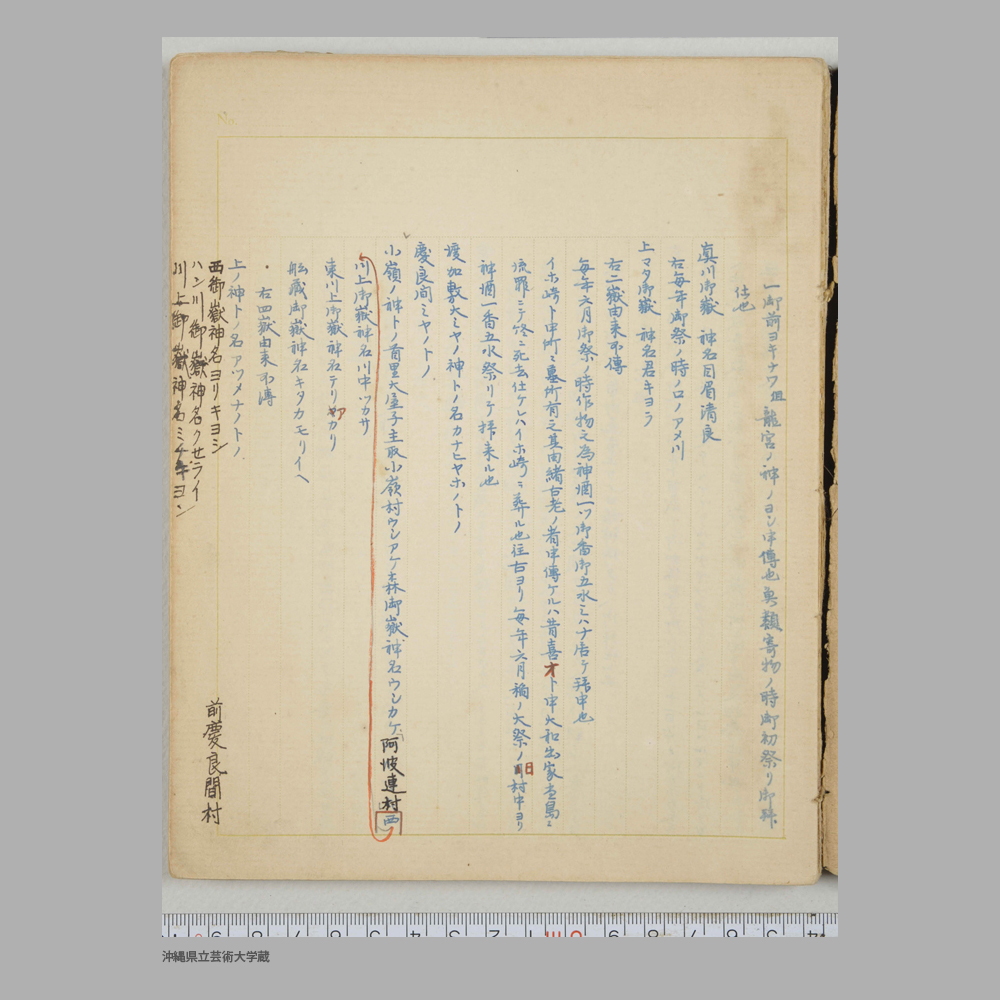 No.
一御前ヨキナワ 龍宮ノ神ノヨシ申傳也魚類寄物ノ時御初祭リ御拜
仕也
眞川御嶽 神名目眉清良
右毎年御祭ノ時ノロノアメ川
上マタ御嶽 神名君キヨラ
右二嶽由来不傳
毎年六月御祭ノ時作物之為神酒一ツ御番御五水ミハナ居テ拝申也
イホ崎ト申所ニ墓所有之其由緒古老ノ者申傳ケルハ昔喜才ト申大和出家壱島ニ
流罪ニテ終ニ死去仕ケレハイホ崎ニ葬ル也往古ヨリ毎年六月稲ノ大祭ノ日村中ヨリ
神酒一番五水祭リテ拝来ル也
渡加敷大ミヤノ神トノ名カナヒヤホノトノ
慶良間ミヤノトノ
小嶺ノ神トノ首里大屋子主取小嶺村ウシアケ森御嶽神名ウシカケ 阿波連村西
川上御嶽神名川中ツカサ
東川上御嶽神名テリヤカリ
舩蔵御嶽神名キタカモリイヘ
右四嶽由来不傳
上ノ神トノ名アツメナノトノ
西御嶽神名ヨリキヨシ
ハン川御嶽神名クセライ
川上御嶽神名ミチキヨシ
前慶良間村
沖縄県立芸術大学蔵